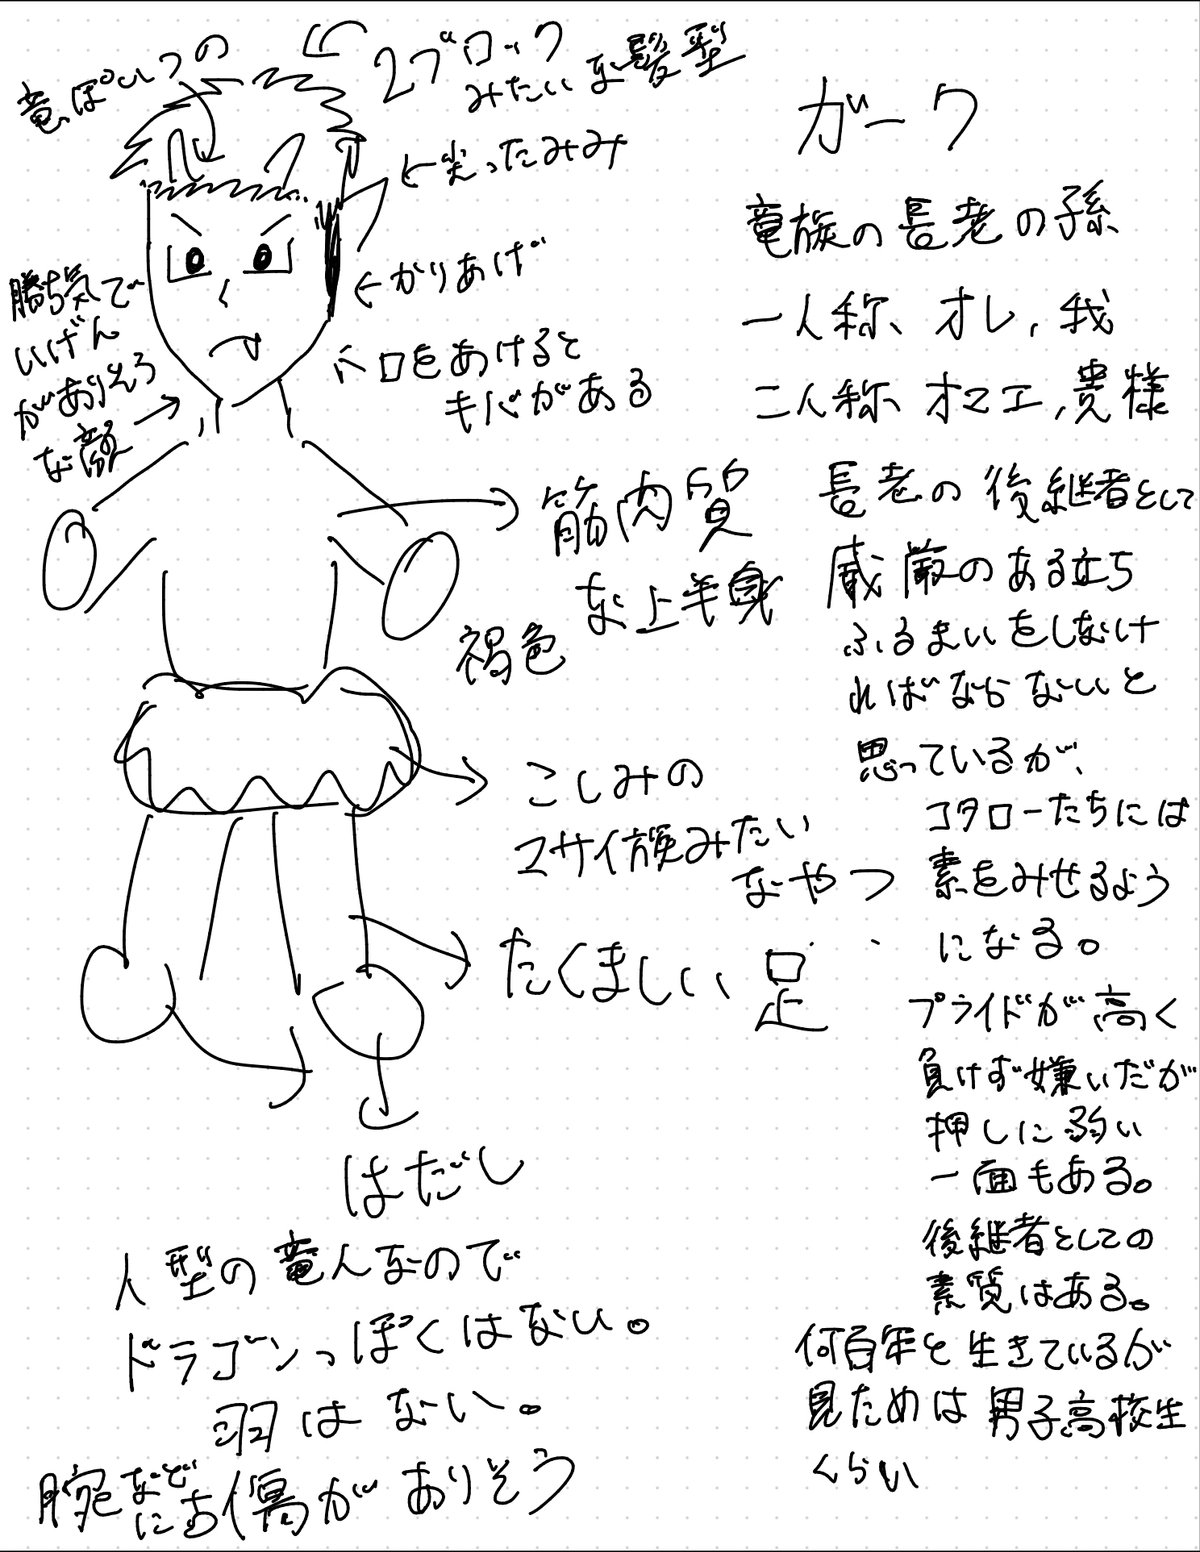 竜っぽいつの
2ブロック
みたいな髪型
←尖ったみみ
←かりあげ
勝ち気で
いげん
がありそう
な顔→
口をあけると
キバがある
→筋肉質
な上半身
褐色
→こしみの
マサイ族みたい
なやつ
→たくましい足
はだし
人型の竜人なので
ドラゴンっぽくはない。
羽はない。
腕などにも傷がありそう
ガーク
竜族の長老の孫
一人称、オレ,我
二人称、オマエ,貴様
長老の後継者として
威厳のある立ち
ふるまいをしなけ
ればならないと
思っているが、
コタローたちには
素をみせるよう
になる。
プライドが高く
負けず嫌いだが
押しに弱い
一面もある。
後継者としての
素質はある。
何百年と生きているが
見ためは男子高校生
くらい